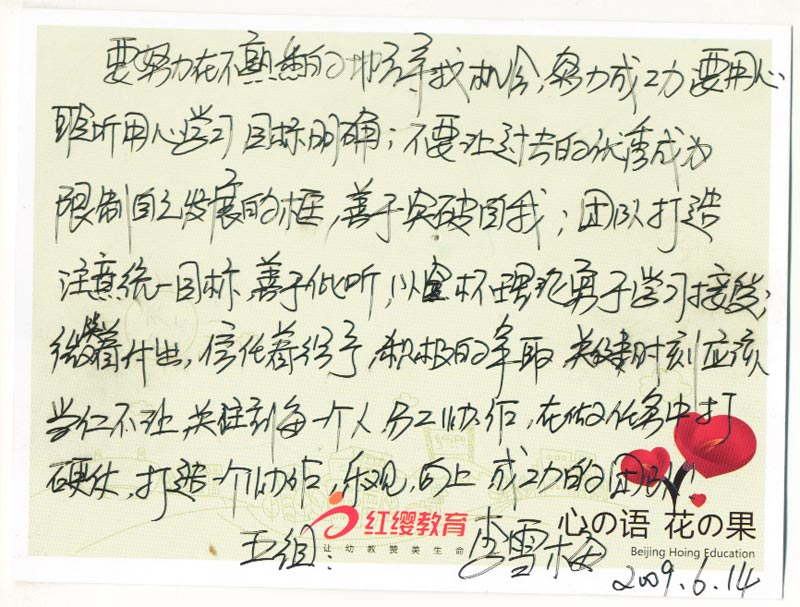 要努力在不熟悉的地方寻找机会,努力成功要用心
聆听用心学习目标明确;不要让过去的优秀成为
限制自己发展的框,善于突破自我;团队打造
注意统一目标,善于倾听,以空杯理记勇于学习接受;
微笑着付出,信任着给予,积极的争取 关键时刻应该
当仁不让 关注到每一个人 分工协作,在做任务中打
硬仗,打造一个协作,乐观,向上 成功的团队!
红缨教育
让幼教赞美生命
心の语 花の果
Beijing Hoing Education
五组: 李雪梅
2009.6.14